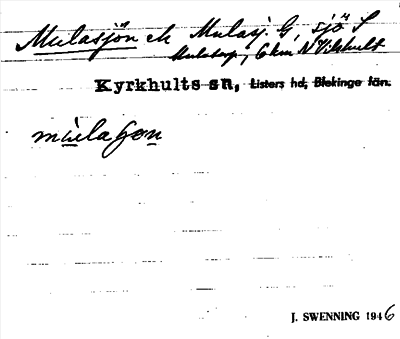 Mulasjön ek Mulasj. G, sjö S
Mulatorp, 6 km N Vilshult
Kyrkhults sn, Listers hd, Blekinge län.
mulagøn
J. SWENNING 1946